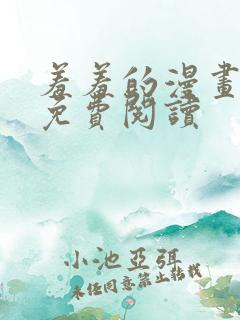 羞羞的漫畫
免費閱讀
小池亞弭
未任同意禁止转载